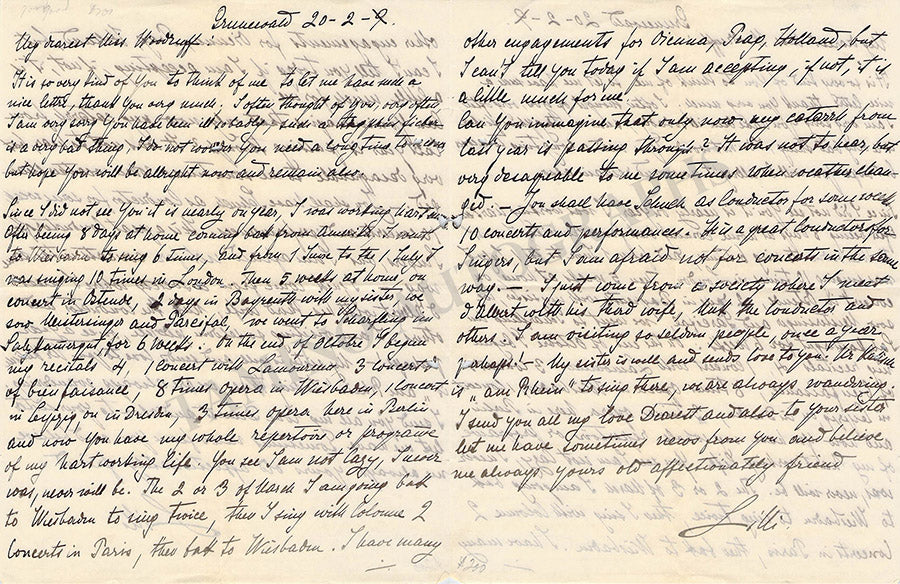 Grunewald 20-2-9.
My dearest Miss Woodruff!
It is so very kind of You to think of me to let me have such a
nice letter, thank You very much. I often thought of you, very often.
I am very sorry You have been ill so badly, such a
is a very bad thing. I do not wonder You need a long time to
but hope You will be allright now and remain also.
Since I did not see You it is nearly on year, I was working hart
after being 8 days at home coming bak from Amerika I went
to Wiesbaden to sing 6 times, and from 1 June to the 1 July I
was singing 10 times in London. Then 5 weeks at home, on
concert in Ostende, 2 days in Bayreuth with my sister we
saw Meistersinger and Parcifal, we went to Scharfling in
Salzkamergut for 6 weeks. On the end of Octobre I began
my recitals 4, 1 concert with Lamoureux 3 concerts
of bienfaisance, 8 times opera in Wiesbaden, 1 Concert
in Leipzig, on in Dresden, 3 times opera here in Berlin
and now You have my whole repertoire or programe
of my hart working life. You see I am not lazy, I never
was, never will be. The 2 or 3 of March I am going bak
to Wiesbaden to sing twice, then I sing with Colonne 2
Concerts in Paris, then bak to Wiesbaden. I have many
other engagements for Vienna, Prag, Holland, but
I can't tell You today if I am accepting, if not, it is
a little much for me.
Can You immagine that only now my catarrh from
last year is passing through? It was not to hear, but
very desagreable to me sometimes when weather chan-
ged. — You shall have Schuch as Conductor for some week
10 concerts and performances. He is a great Conductor for
Singers, but I am afraid not for concerts in the same
way. — I just come from a society where I meet
d'Albert with his third wife, Muk the conductor and
others. I am visiting so seldom people, once a year
perhaps! — My sister is well and sends love to You. Mr Kalisch
is "am Rhein" to sing there, we are always wandering.
I send you all my love Dearest and also to your sister
let me have sometimes news from You and believe
me always yours old affectionately friend
Lilli.
$200